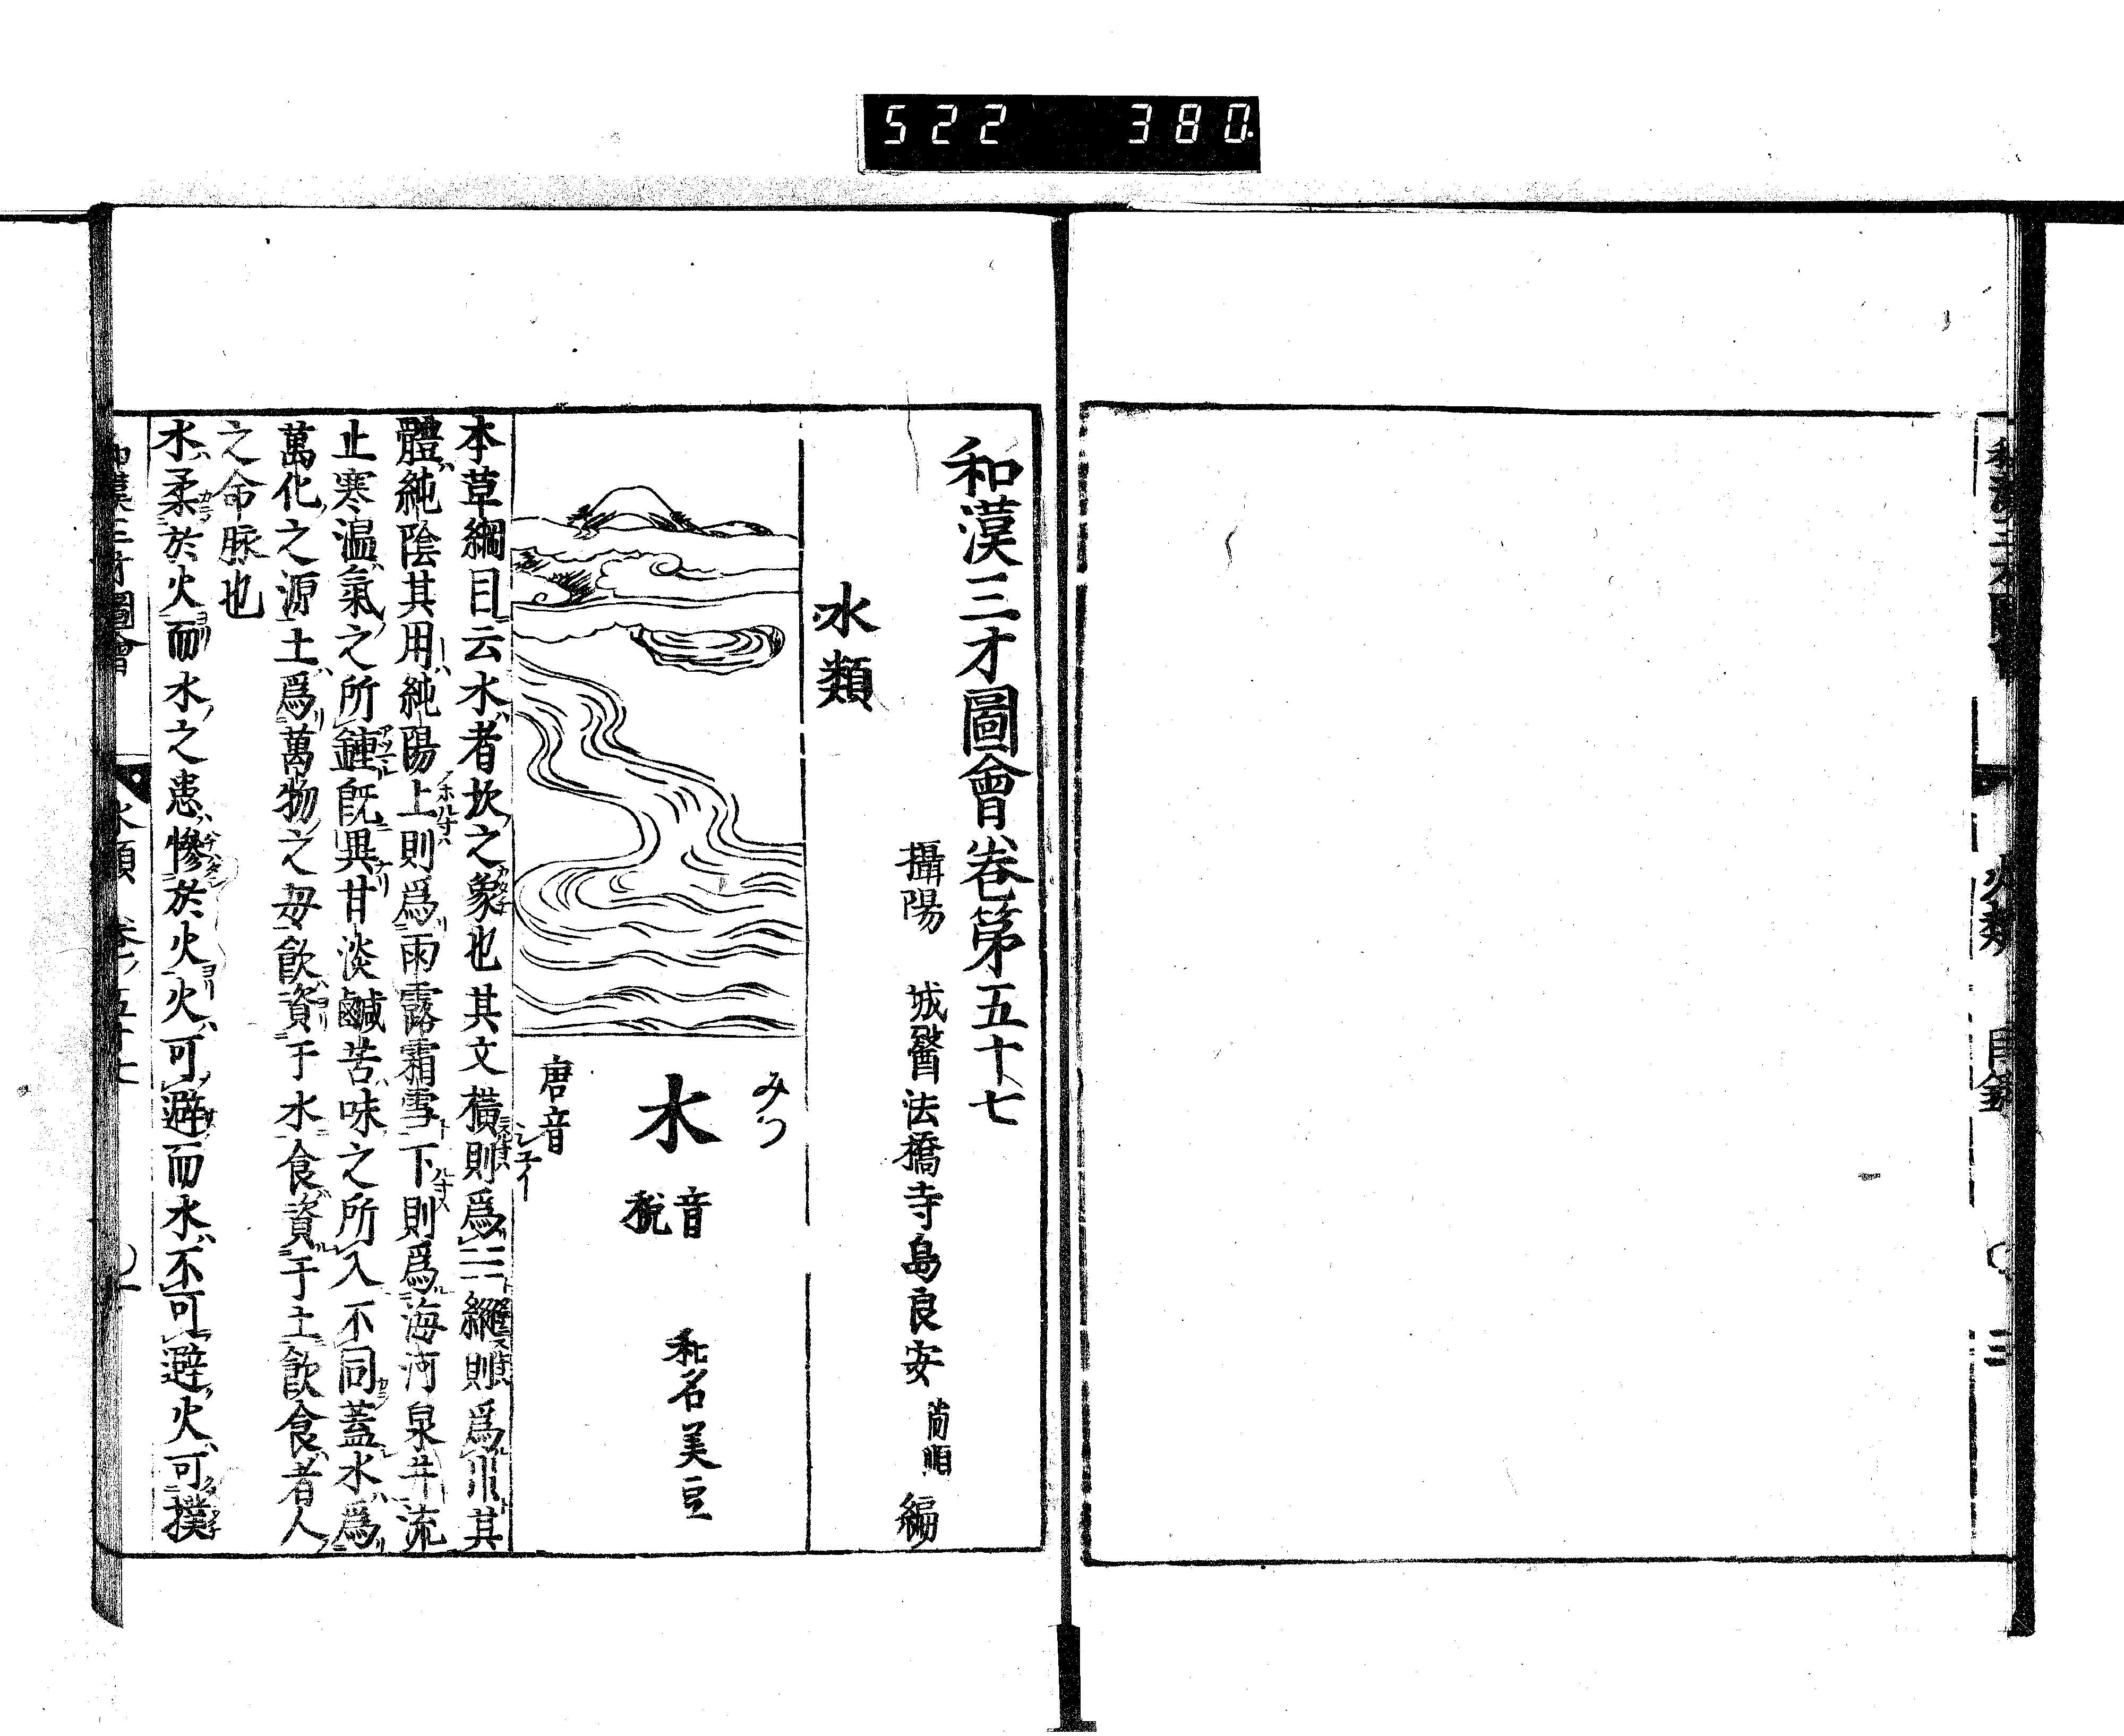 522 380.
和漢三才圖會卷第五十七
攝陽 城醫法橋寺島良安尚順編
水類
みつ
水
音税
和名美豆
唐音シユイ
本草綱目云水者坎之象也其文橫則爲☵縱則爲〣其
體純陰其用純陽上則爲雨露霜雪下則爲海河泉井流
止寒溫氣之所鍾旣異甘淡鹹苦味之所入不同蓋水爲
萬化之源土爲萬物之母飮資于水食資于土飮食者人
之命脉也
水柔於火而水之患慘於火火可避而水不可避火可撲
和漢三才圖會 水類 卷ノ五十七
火類 目錄 三